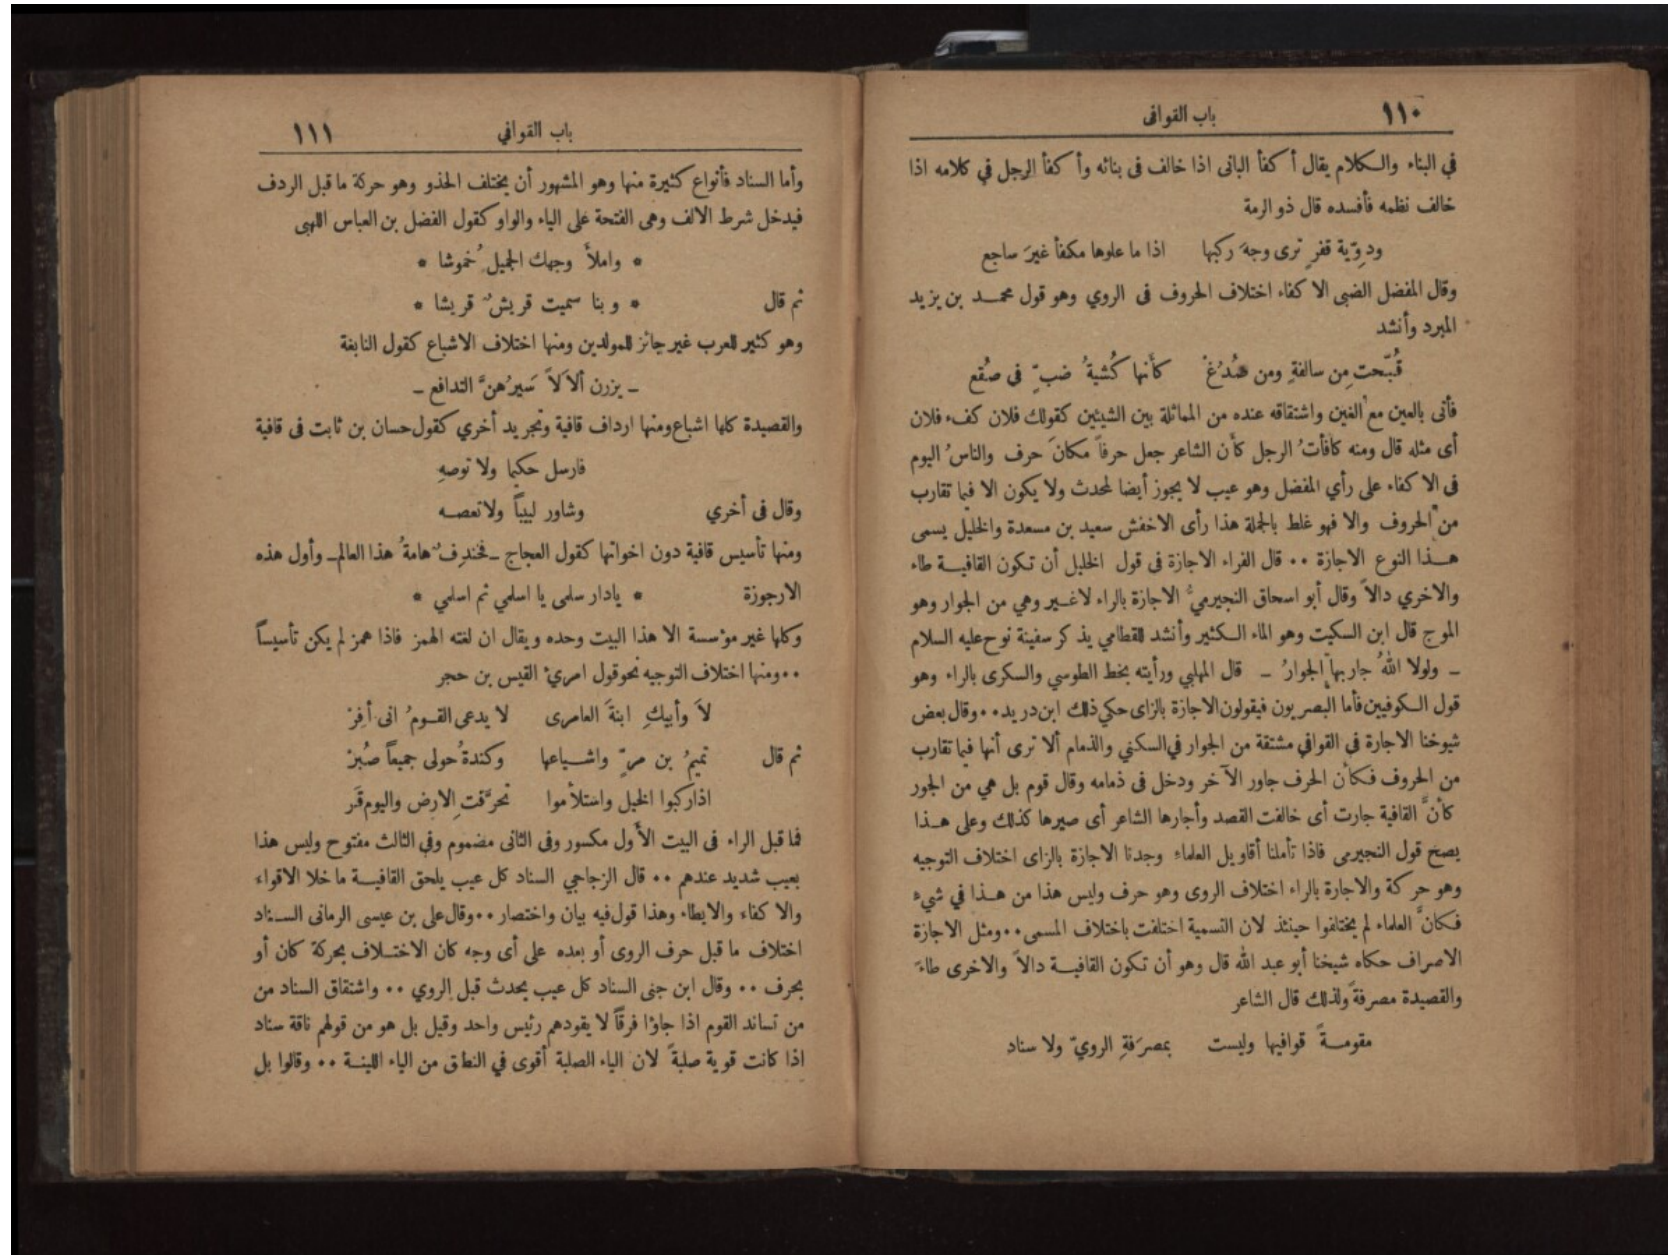 ١١٠ باب القوافى
في البناء والكلام يقال أكفأ البانى اذا خالف فى بنائه وأكفأ الرجل في كلامه اذا
خالف نظمه فأفسده قال ذو الرمة
ودوّية قفر ترى وجهَ ركبها اذا ما علوها مكفأ غيرَ ساجع
وقال المفضل الضبى الاكفاء اختلاف الحروف فى الروي وهو قول محمد بن يزيد
المبرد وأنشد
قُبّحت مِن سالفةٍ ومن صُدُغْ كأَنها كُشيةُ ضبّ فى صقُع
فأتى بالعين مع الغين واشتقاقه عنده من المماثلة بين الشيئين كقولك فلان كفء فلان
أى مثله قال ومنه كافأتُ الرجل كأن الشاعر جعل حرفاً مكانَ حرف والناسُ اليوم
فى الاكفاء على رأي المفضل وهو عيب لا يجوز أيضا لمحدث ولا يكون الا فيما تقارب
من الحروف والا فهو غلط بالجملة هذا رأى الاخفش سعيد بن مسعدة والخليل يسمى
هذا النوع الاجازة ٠٠ قال الفراء الاجازة فى قول الخليل أن تكون القافية طاء
والاخري دالاً وقال أبو اسحاق النجيرميُّ الاجازة بالراء لاغير وهي من الجوار وهو
الموج قال ابن السكيت وهو الماء الكثير وأنشد للقطامي يذكر سفينة نوح عليه السلام
ـ ولولا اللهُ جاربها الجوارُ ـ قال المهلبي ورأيته بخط الطوسي والسكرى بالراء وهو
قول الكوفيين فأما البصريون فيقولون الاجازة بالزاى حكي ذلك ابن دريد ٠٠ وقال بعض
شيوخنا الاجارة في القوافي مشتقة من الجوار في السكني والذمام ألا ترى أنها فيما تقارب
من الحروف فكأن الحرف جاور الآخر ودخل فى ذمامه وقال قوم بل هي من الجور
كأنَّ القافية جارت أى خالفت القصد وأجارها الشاعر أى صيرها كذلك وعلى هذا
يصح قول النجيرمى فاذا تأملنا أقاويل العلماء وجدنا الاجازة بالزاى اختلاف التوجيه
وهو حركة والاجارة بالراء اختلاف الروى وهو حرف وليس هذا من هذا في شيء
فكانَّ العلماء لم يختلفوا حينئذ لان التسمية اختلفت باختلاف المسمى ٠٠ ومثل الاجازة
الاصراف حكاه شيخنا أبو عبد الله قال وهو أن تكون القافية دالاً والاخرى طاءً
والقصيدة مصرفةً ولذلك قال الشاعر
مقومةً قوافيها وليست بمصرَفةِ الرويّ ولا سناد
باب القوافي ١١١
وأما السناد فأنواع كثيرة منها وهو المشهور أن يختلف الحذو وهو حركة ما قبل الردف
فيدخل شرط الالف وهى الفتحة على الياء والواو كقول الفضل بن العباس اللهبى
* واملأَ وجهك الجميل خُموشا *
ثم قال * وبنا سميت قريشٌ قريشا *
وهو كثير للعرب غير جائز للمولدين ومنها اختلاف الاشباع كقول النابغة
ـ يزرن ألاَلاً سَيرُهنَّ التدافع ـ
والقصيدة كلها اشباع ومنها ارداف قافية وتجريد أخري كقول حسان بن ثابت فى قافية
فارسل حكيما ولا توصهِ
وقال فى أخري وشاور لبيباً ولاتعصه
ومنها تأسيس قافية دون اخواتها كقول العجاج ـ فخندِفٌ هامةُ هذا العالم ـ وأول هذه
الارجوزة * يادار سلمى يا اسلمي ثم اسلمي *
وكلها غير مؤسسة الا هذا البيت وحده ويقال ان لغته الهمز فاذا همز لم يكن تأسيساً
٠٠ ومنها اختلاف التوجيه نحو قول امرئ القيس بن حجر
لاَ وأبيكِ ابنةَ العامرى لا يدعى القومُ انى أفِرْ
ثم قال تميمُ بن مرّ واشياعها وكندةُ حولى جميعاً صُبُرْ
اذا ركبوا الخيل واستلأموا تحرَّقتِ الارض واليوم قَر
فما قبل الراء فى البيت الأول مكسور وفى الثانى مضموم وفي الثالث مفتوح وليس هذا
بعيب شديد عندهم ٠٠ قال الزجاجي السناد كل عيب يلحق القافية ما خلا الاقواء
والاكفاء والايطاء وهذا قول فيه بيان واختصار ٠٠ وقال على بن عيسى الرمانى السناد
اختلاف ما قبل حرف الروى أو بعده على أى وجه كان الاختلاف بحركة كان أو
بحرف ٠٠ وقال ابن جنى السناد كل عيب يحدث قبل الروي ٠٠ واشتقاق السناد من
من تساند القوم اذا جاؤا فرقاً لا يقودهم رئيس واحد وقيل بل هو من قولهم ناقة سناد
اذا كانت قوية صلبةً لان الياء الصلبة أقوى في النطق من الياء اللينة ٠٠ وقالوا بل